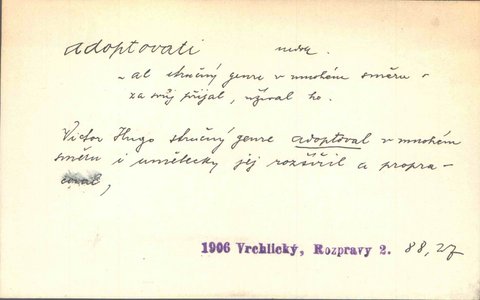 adoptovati nedok.
~al stručný genre v mnohém směru =
za svůj přijal, užíval ho.
Victor Hugo stručný genre adoptoval v mnohém
směru i umělecky jej rozšířil a propra-
coval,
1906 Vrchlický, Rozpravy 2. 88, 27